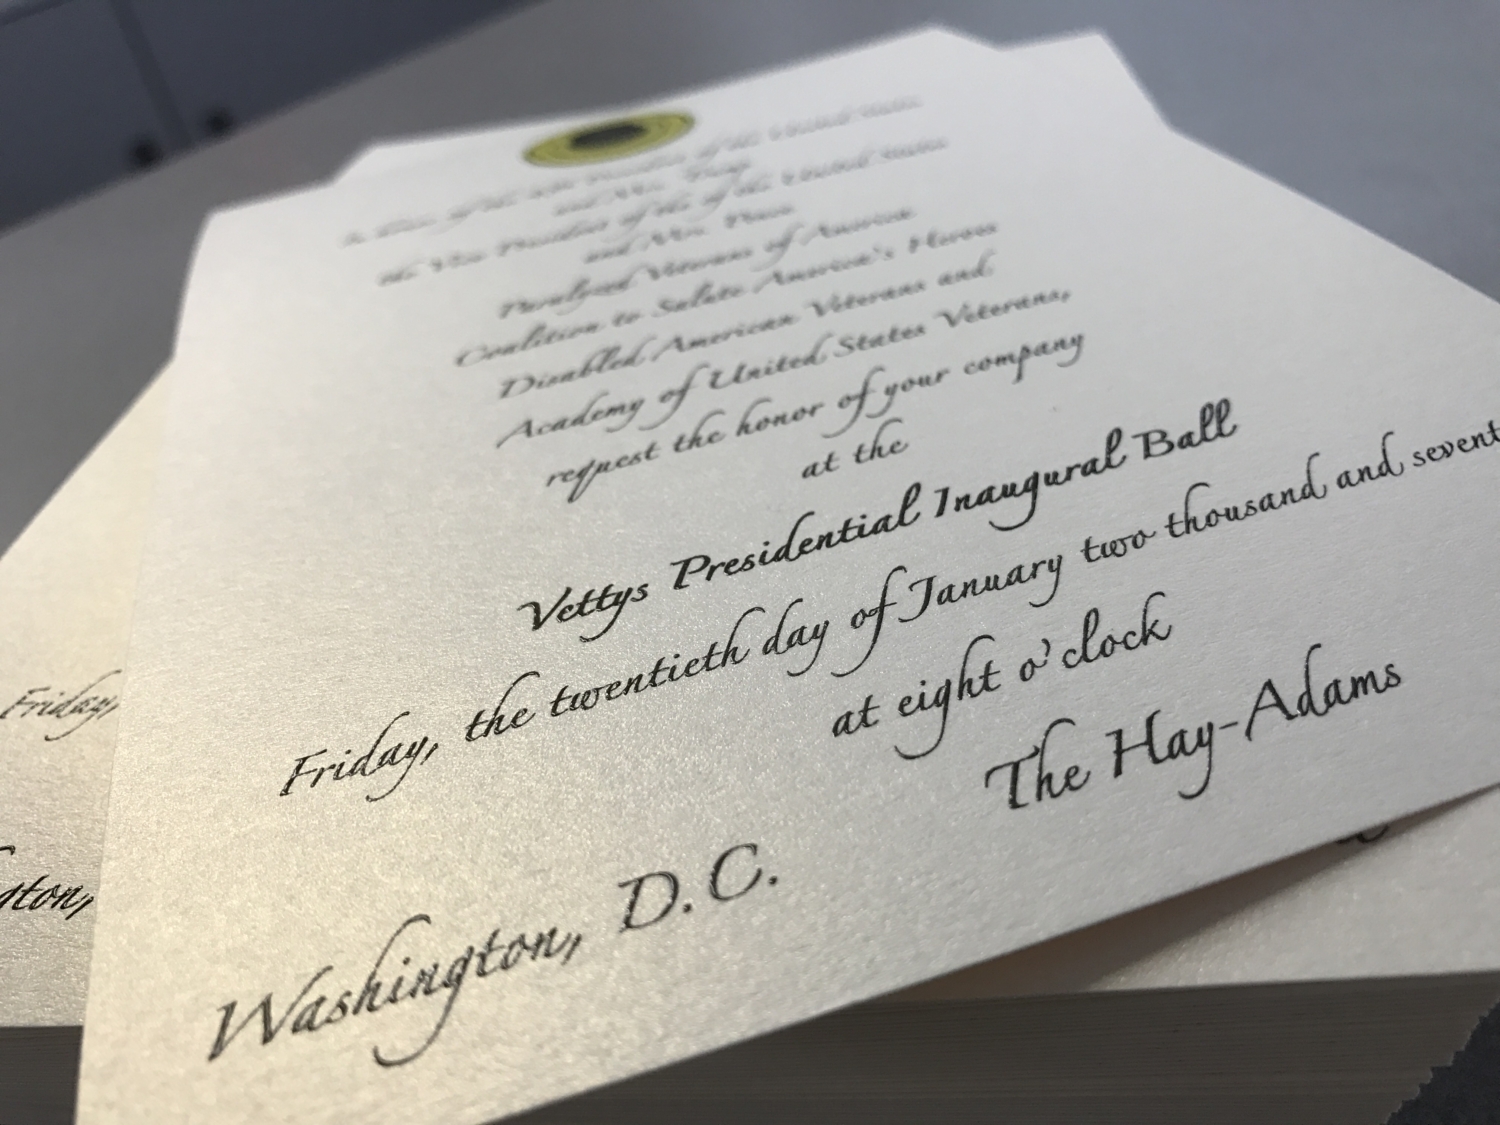 of the United States
and Mrs.
the Vice President of the of the United States
and Mrs. Pence
Paralyzed Veterans of America
Coalition to Salute America's Heroes
Disabled American Veterans and
Academy of United States Veterans,
request the honor of your company
at the
Vettys Presidential Inaugural Ball
Friday, the twentieth day of January two thousand and sevent
at eight o'clock
The Hay-Adams
Washington, D.C.
Friday,
gton,